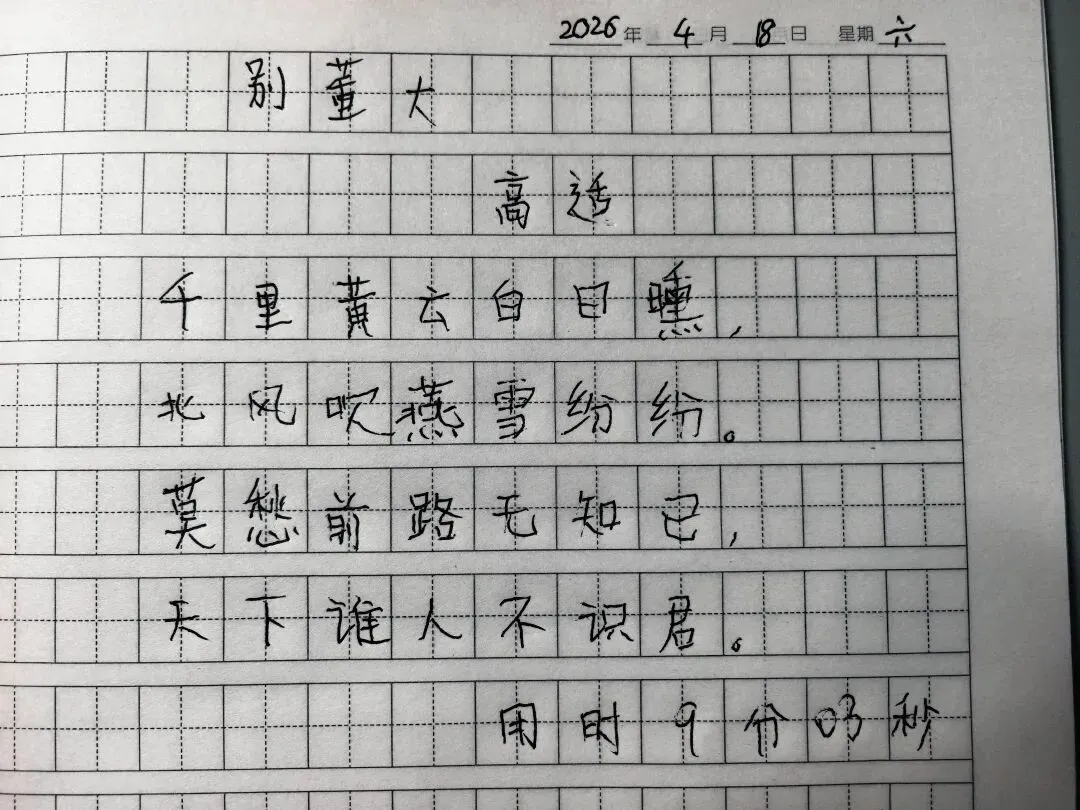 2026年 4月 18日 星期六
别董大
高适
千里黄云白日曛,
北风吹燕雪纷纷。
莫愁前路无知己,
天下谁人不识君。
用时9分03秒